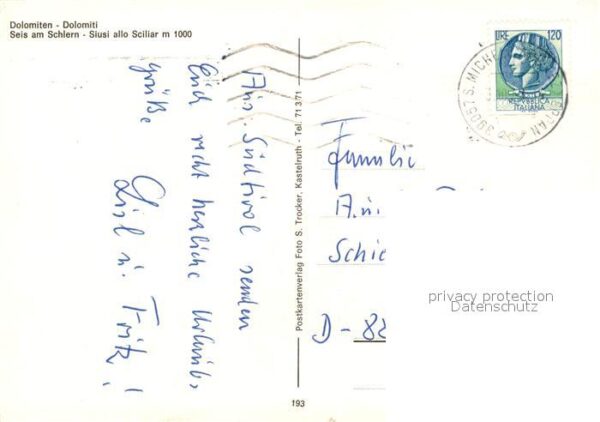 Dolomiten - Dolomiti
Seis am Schlern - Siusi allo Sciliar m 1000
Aus Südtirol senden
Euch recht herzliche Urlaubs
grüße
Lisl u. Fritz!
Postkartenverlag Foto S. Trocker, Kastelruth - Tel. 71371
193
LIRE 120
REPVBBLICA
ITALIANA
39057 S. MICH
Familie
A.u.
Schie
D-82
privacy protection
Datenschutz